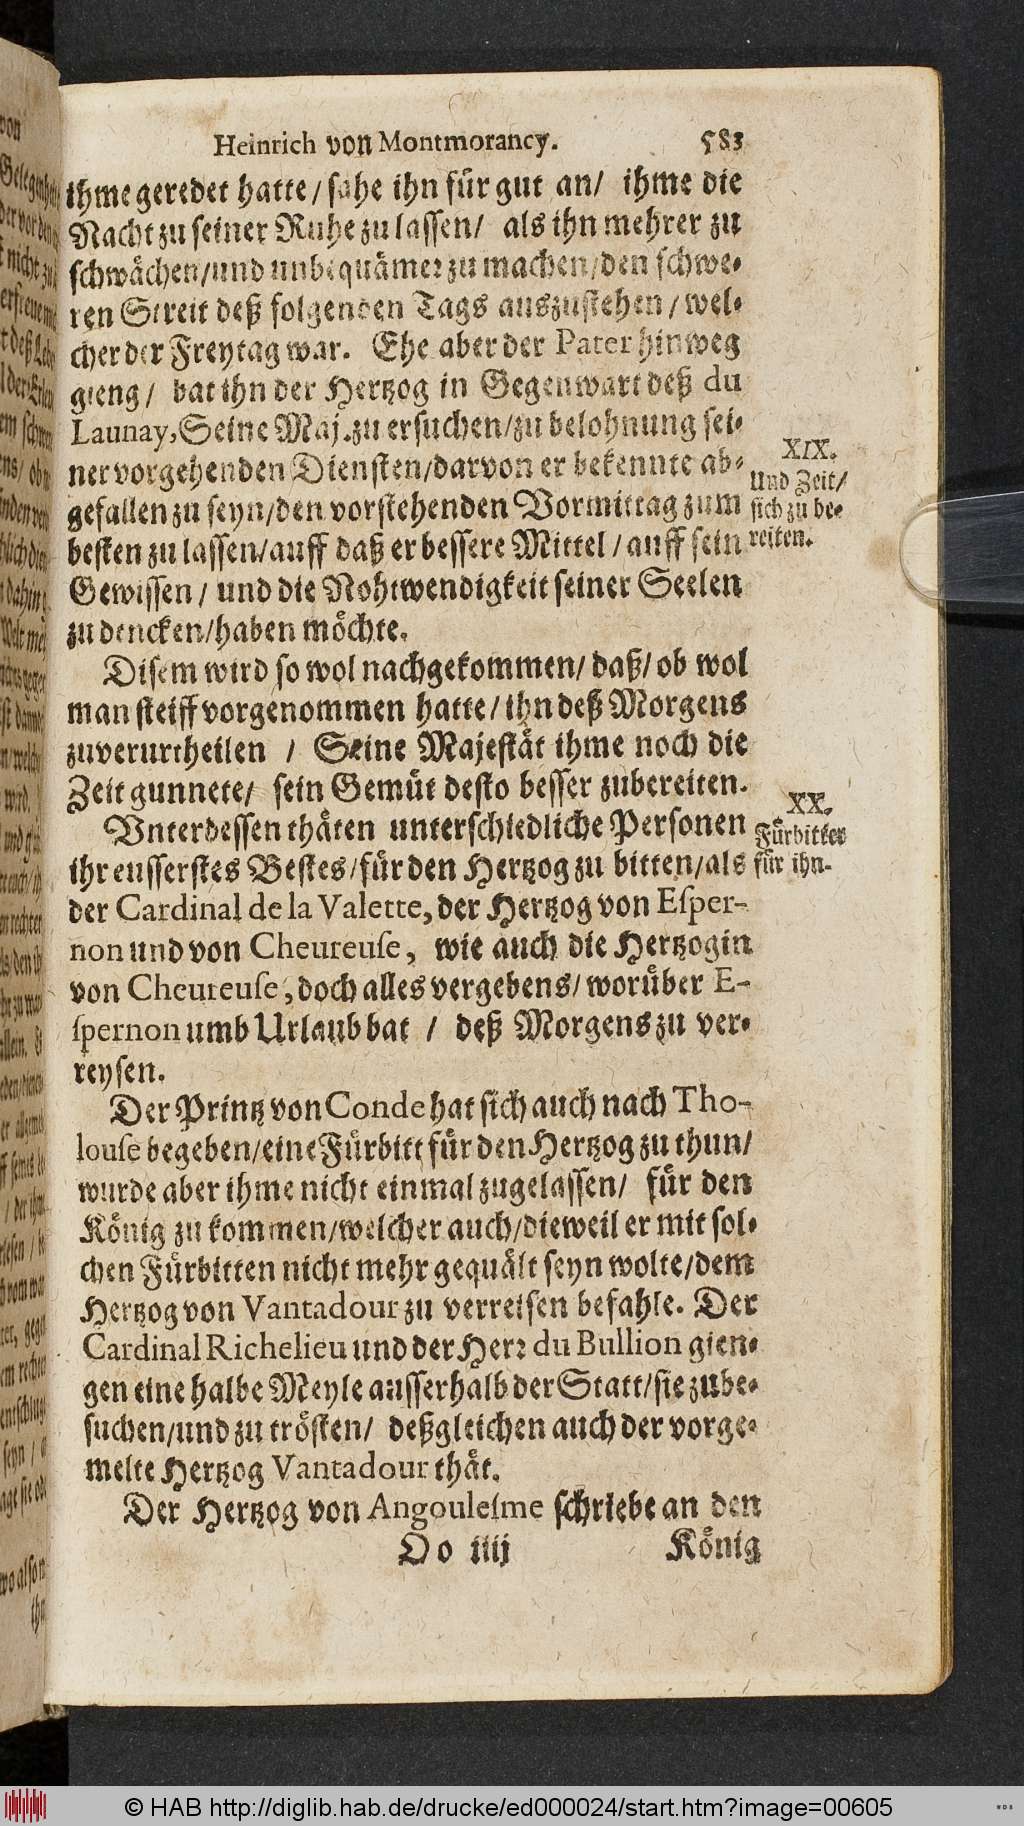 Heinrich von Montmorancy. 583
ihme geredet hatte / sahe ihn für gut an / ihme die
Nacht zu seiner Ruhe zu lassen / als ihn mehrer zu
schwächen / und unbequämer zu machen / den schwe-
ren Streit deß folgenden Tags auszustehen / wel-
cher der Freytag war. Ehe aber der Pater hinweg
gieng / bat ihn der Hertzog in Gegenwart deß du
Launay, Seine Maj. zu ersuchen / zu belohnung sei-
ner vorgehenden Diensten / darvon er bekennte ab-
gefallen zu seyn / den vorstehenden Vormittag zum
besten zu lassen / auff daß er bessere Mittel / auff sein
Gewissen / und die Nohtwendigkeit seiner Seelen
zu dencken / haben möchte.
XIX.
Und Zeit /
sich zu be-
reiten.
Disem wird so wol nachgekommen / daß / ob wol
man steiff vorgenommen hatte / ihn deß Morgens
zuverurtheilen / Seine Majestät ihme noch die
Zeit gunnete / sein Gemüt desto besser zubereiten.
Vnterdessen thäten unterschiedliche Personen
ihr eusserstes Bestes / für den Hertzog zu bitten / als
der Cardinal de la Valette, der Hertzog von Eſper-
non und von Cheureuſe, wie auch die Hertzogin
von Cheureuſe, doch alles vergebens / worüber E-
ſpernon umb Urlaub bat / deß Morgens zu ver-
reysen.
XX.
Fürbitter
für ihn.
Der Printz von Conde hat sich auch nach Tho-
louſe begeben / eine Fürbitt für den Hertzog zu thun /
wurde aber ihme nicht einmal zugelassen / für den
König zu kommen / welcher auch / dieweil er mit sol-
chen Fürbitten nicht mehr gequält seyn wolte / dem
Hertzog von Vantadour zu verreisen befahle. Der
Cardinal Richelieu und der Herr du Bullion gien-
gen eine halbe Meyle ausserhalb der Statt / sie zube-
suchen / und zu trösten / deßgleichen auch der vorge-
melte Hertzog Vantadour thät.
Der Hertzog von Angouleſme schriebe an den
Oo iiij König
© HAB http://diglib.hab.de/drucke/ed000024/start.htm?image=00605